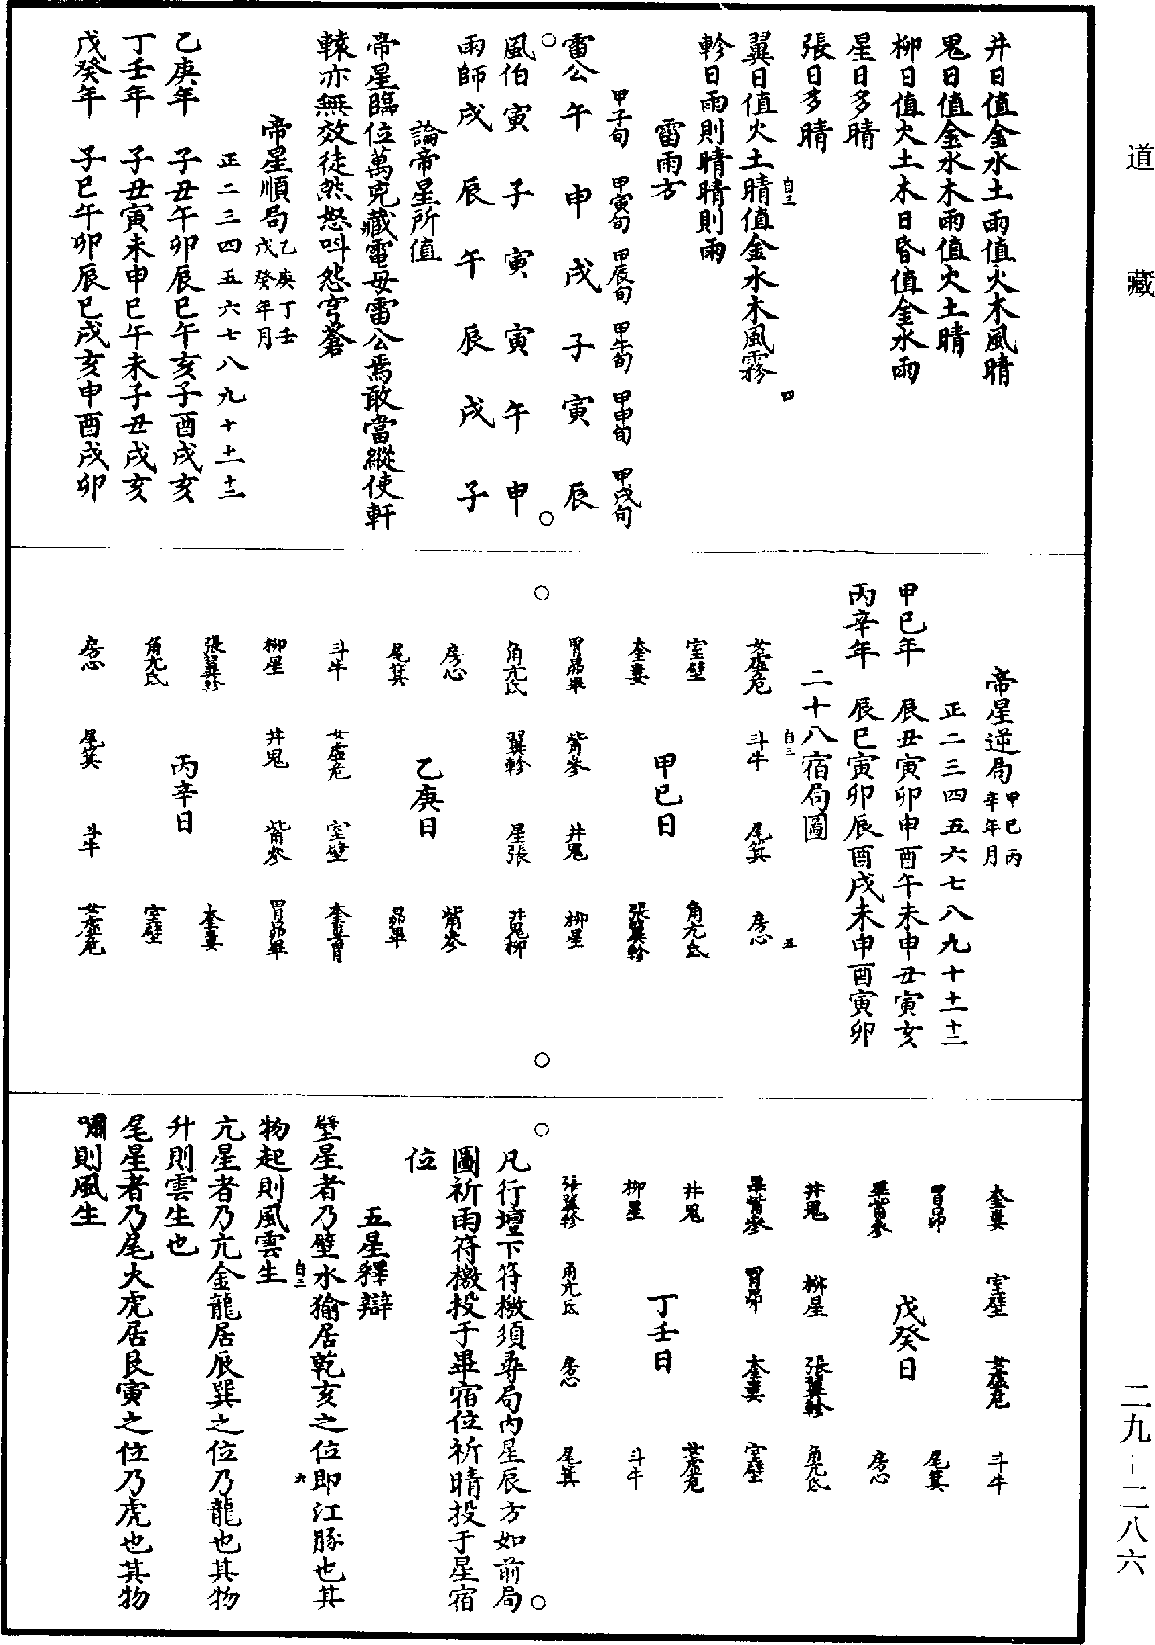 道藏
井日值金水土雨值火木風晴
鬼日值金水木雨值火土晴
柳日值火土木日昏值金水雨
星日多晴
張日多晴
翼日值火土晴值金水木風霧
軫日雨則晴晴則雨
雷雨方
甲子旬 甲寅旬 甲辰旬 甲午旬 甲申旬 甲戌旬
雷公午 申 戌 子 寅 辰
風伯寅 子 寅 寅 午 申
雨師戌 辰 午 辰 戌 子
論帝星所值
帝星臨位萬兇藏電母雷公焉敢當縱使軒
轅亦無效徒然怒叫怨穹蒼
帝星順局乙庚丁壬戊癸年月
正二三四五六七八九十十一十二
乙庚年 子丑午卯辰巳午亥子酉戌亥
丁壬年 子丑寅未申巳午未子丑戌亥
戊癸年 子巳午卯辰巳戌亥申酉戌卯
帝星逆局甲巳丙辛年月
正二三四五六七八九十十一十二
甲巳年 辰丑寅卯申酉午未申丑寅亥
丙辛年 辰巳寅卯辰酉戌未申酉寅卯
二十八宿局圖
女虛危 斗牛 尾箕 房心
室壁 角亢氐
甲巳日
奎婁 張翼軫
胃昴畢 觜參 井鬼 柳星
角亢氐 翼軫 星張 井鬼柳
房心 觜參
乙庚日
尾箕 昴畢
斗牛 女虛危 室壁 奎婁胃
柳星 井鬼 觜參 胃昴畢
張翼軫 奎婁
丙辛日
角亢氐 室壁
房心 尾箕 斗牛 女虛危
奎婁 室壁 女虛危 斗牛
胃昴 尾箕
戊癸日
畢觜參 房心
井鬼 柳星 張翼軫 角亢氐
畢觜參 胃昴 奎婁 室壁
井鬼 女虛危
丁壬日
柳星 斗牛
張翼軫 角亢氐 房心 尾箕
凡行壇下符檄須尋局內星辰方如前局
圖祈雨符檄投于畢宿位祈晴投于星宿
位
五星釋辯
壁星者乃壁水㺄居乾亥之位即江豚也其
物起則風雲生
亢星者乃亢金龍居辰巽之位乃龍也其物
升則雲生也
尾星者乃尾火虎居艮寅之位乃虎也其物
嘯則風生
二九-二八六